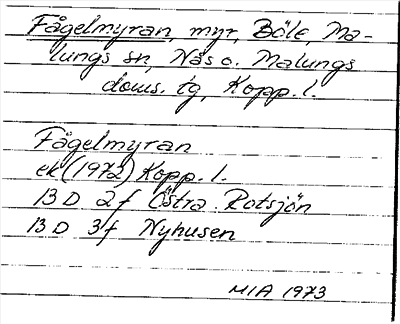 Fågelmyran, myr, Böle, Ma-
lungs sn, Nås o. Malungs
doms. tg, Kopp. l.
Fågelmyran
ek (1972) Kopp. l.
13 D 2f Östra Rotsjön
13 D 3f Nyhusen
MIA 1973